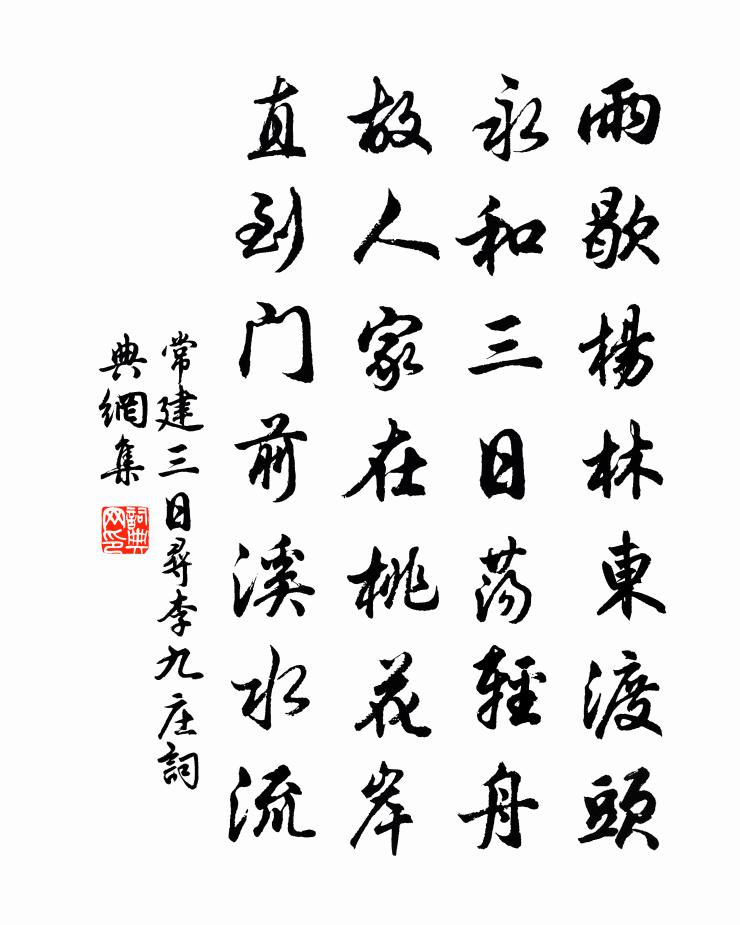 雨歇楊林東渡頭
永和三日蕩輕舟
故人家在桃花岸
直到门前溪水流
常建三日尋李九庄詞
典網集
詞典网印